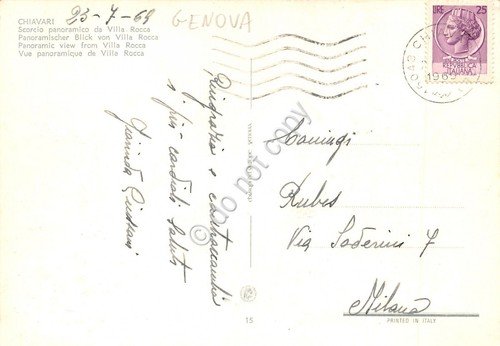 23-7-69 GENOVA
CHIAVARI
Scorcio panoramico da Villa Rocca
Panoramischer Blick von Villa Rocca
Panoramic view from Villa Rocca
Vue panoramique de Villa Rocca
LIRE 25
ITALIANA
1969
Ringrazio e contraccambio
i più cordiali saluti
do not copy
Rubes
Via Soderini 7
Milano
PRINTED IN ITALY
15